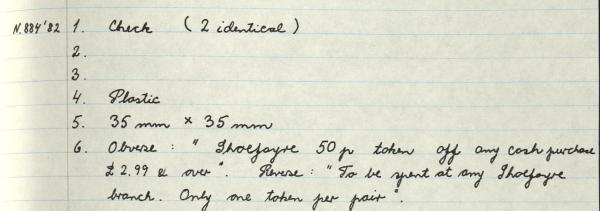 N.884'82 1. Check (2 identical)
2.
3.
4. Plastic
5. 35 mm × 35 mm
6. Obverse : " Shoefayre 50 p token off any cash purchase
£ 2.99 & over". Reverse : "To be spent at any Shoefayre
branch. Only one token per pair".